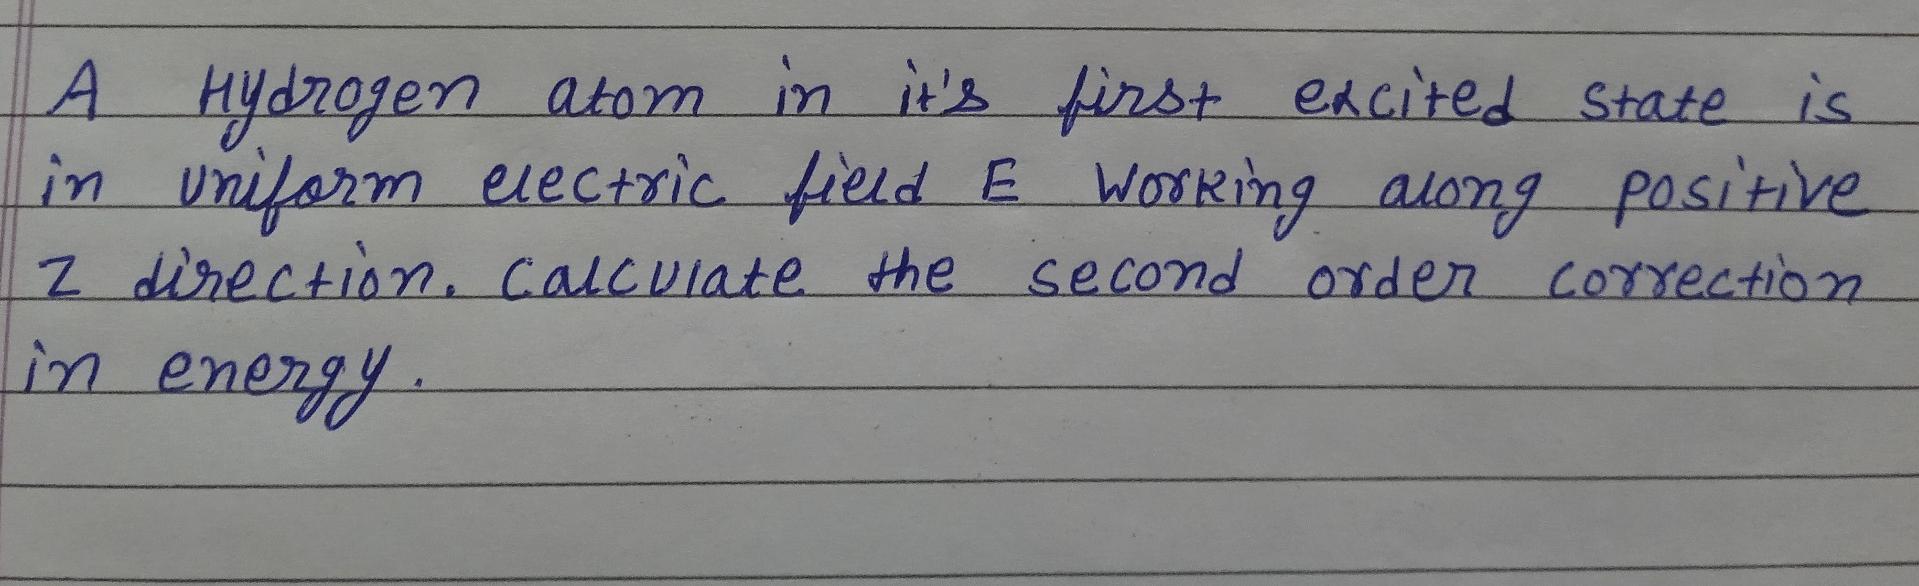 A Hydrogen atom in it's first excited state is
in uniform electric field E working along positive
z direction. Calculate the second order correction
in energy.